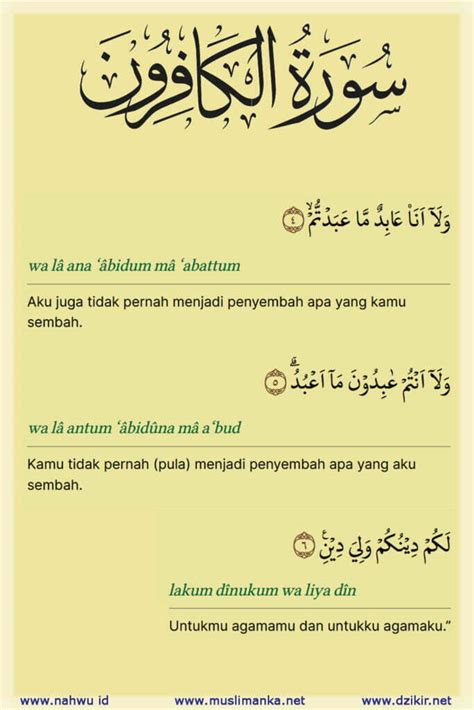 سُورَةُ الْكَافِرُونَ
وَلَآ اَنَا۠ عَابِدٌ مَّا عَبَدْتُّمْۙ ٤
wa lâ ana ‘âbidum mâ ‘abattum
Aku juga tidak pernah menjadi penyembah apa yang kamu
sembah.
وَلَآ اَنْتُمْ عٰبِدُوْنَ مَآ اَعْبُدُۗ ٥
wa lâ antum ‘âbidûna mâ a‘bud
Kamu tidak pernah (pula) menjadi penyembah apa yang aku
sembah.
لَكُمْ دِيْنُكُمْ وَلِيَ دِيْنِࣖ ٦
lakum dînukum wa liya dîn
Untukmu agamamu dan untukku agamaku.”
www.nahwu id www.muslimanka.net www.dzikir.net